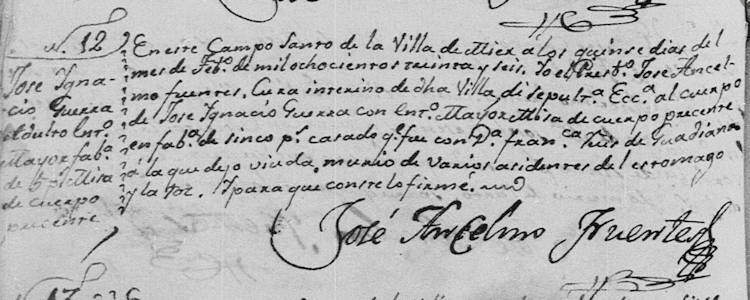 N. 12
Jose Igna-
cio Guerra
Adulto Ent.º
Mayor fab.ª
de 5 p.s Misa
de cuerpo
precente
En este Campo Santo de la Villa de Mier á los quinse dias del
mes de Feb.º de mil ochocientos treinta y seis. Yo el Presb.º Jose Ancel-
mo fuentes, Cura interino de dha Villa di sepult.ª Ecc.ª al cuerpo
de Jose Ignacio Guerra con ent.º Mayor Misa de cuerpo precente
en fab.ª de sinco p.s casado q.e fue con D.ª Fran.ca Luis de Guadiana
á la que dejo viuda, murio de varios asidentes del estomago
y la toz. Y para que conste lo firmé.
José Ancelmo Fuentes